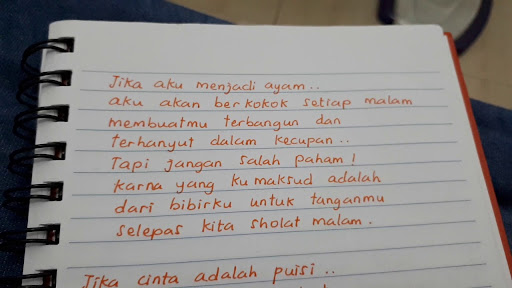 Jika aku menjadi ayam..
aku akan berkokok setiap malam
membuatmu terbangun dan
terhanyut dalam kecupan..
Tapi jangan salah paham!
karna yang ku maksud adalah
dari bibirku untuk tanganmu
selepas kita sholat malam.
Jika cinta adalah puisi..